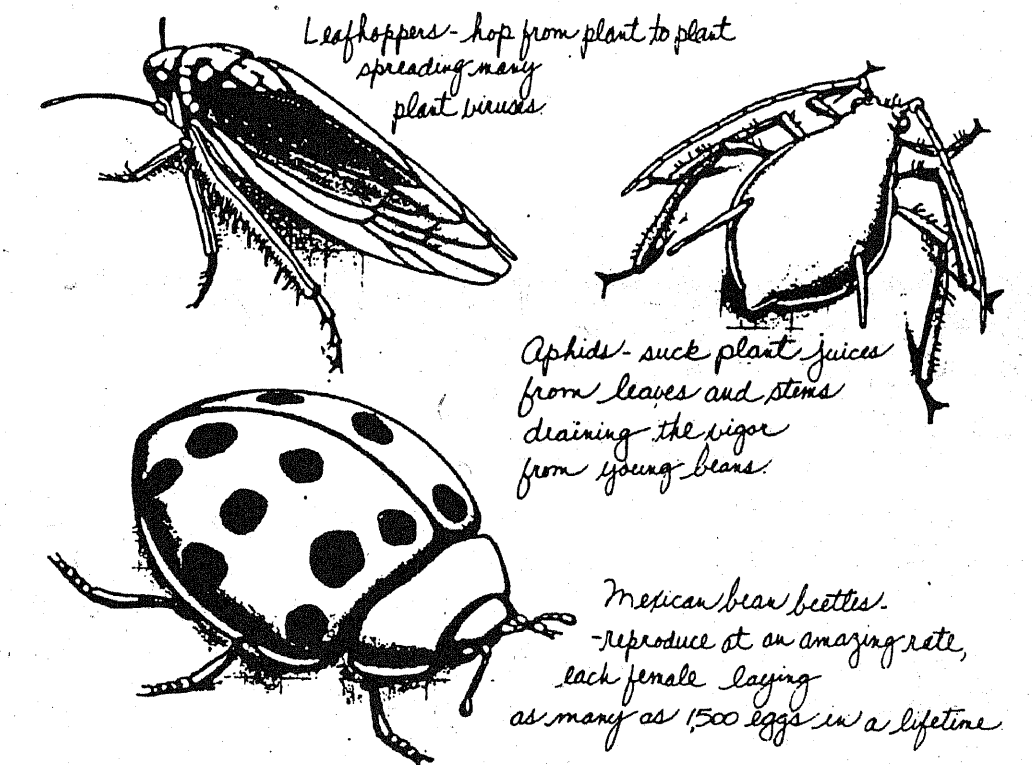 Leafhoppers - hop from plant to plant
spreading many
plant viruses.
Aphids - suck plant juices
from leaves and stems
draining the vigor
from young beans.
Mexican bean beetles -
- reproduce at an amazing rate,
each female laying
as many as 1,500 eggs in a lifetime